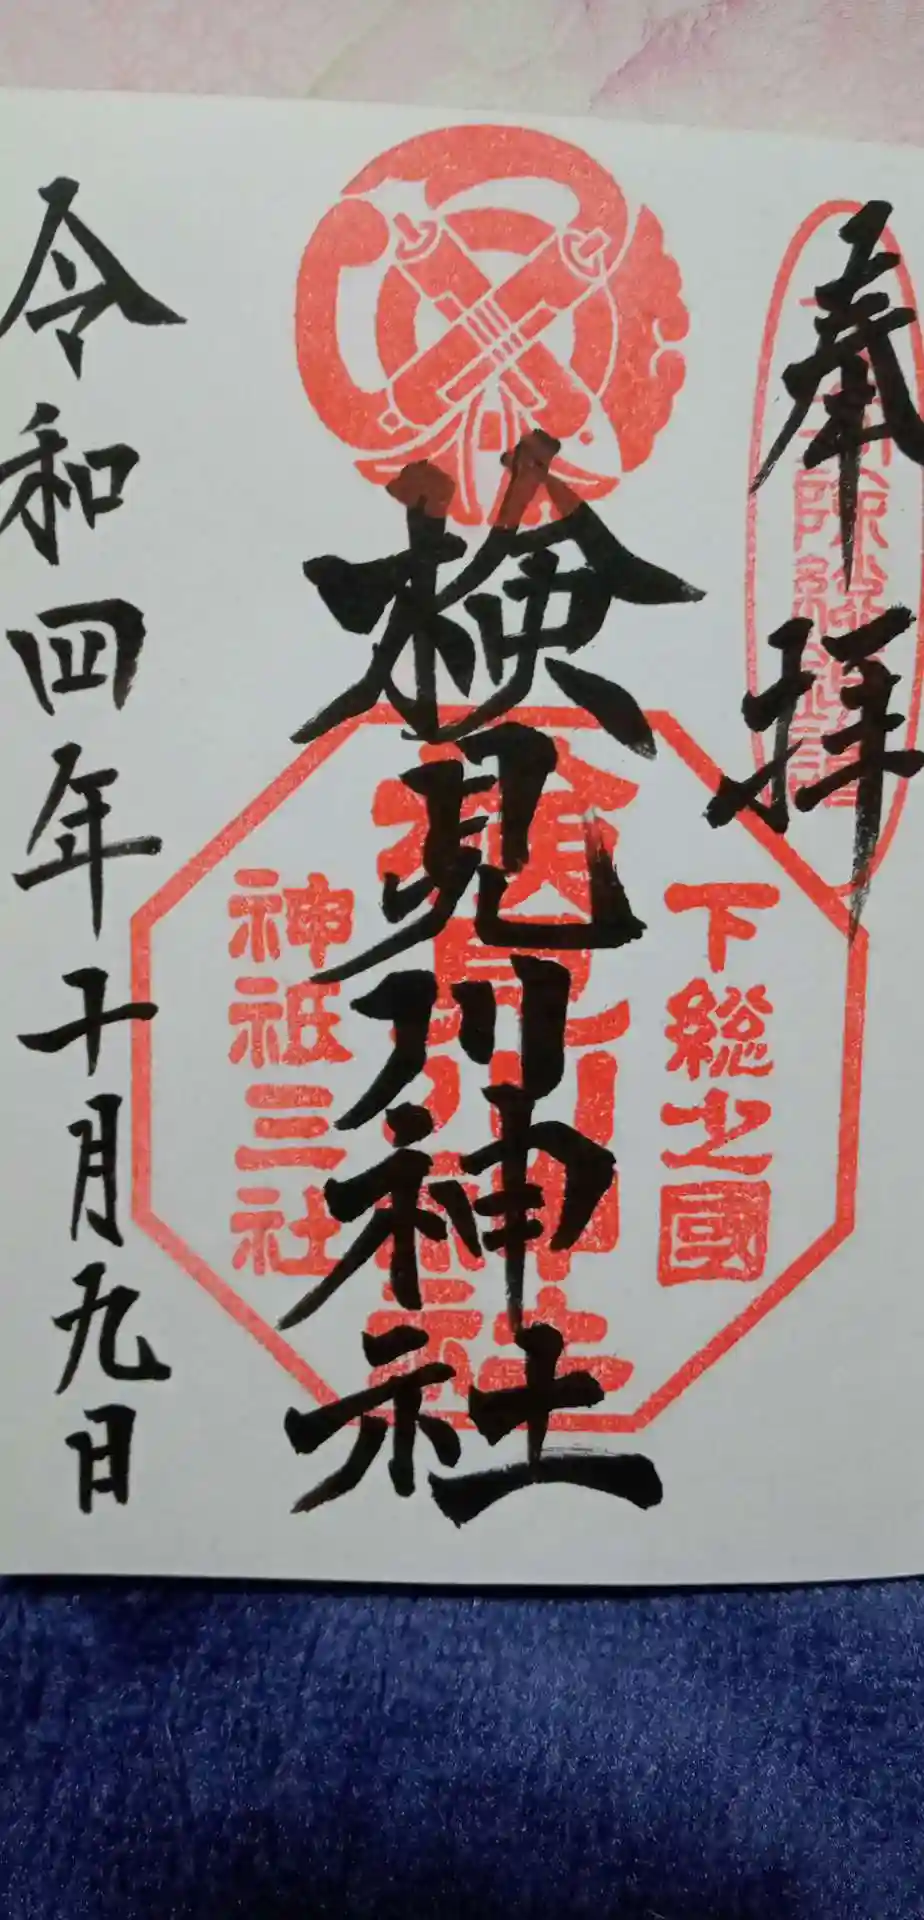 奉拝
下総之國
検見川神社
検見川神社
神祇三社
令和四年十月九日